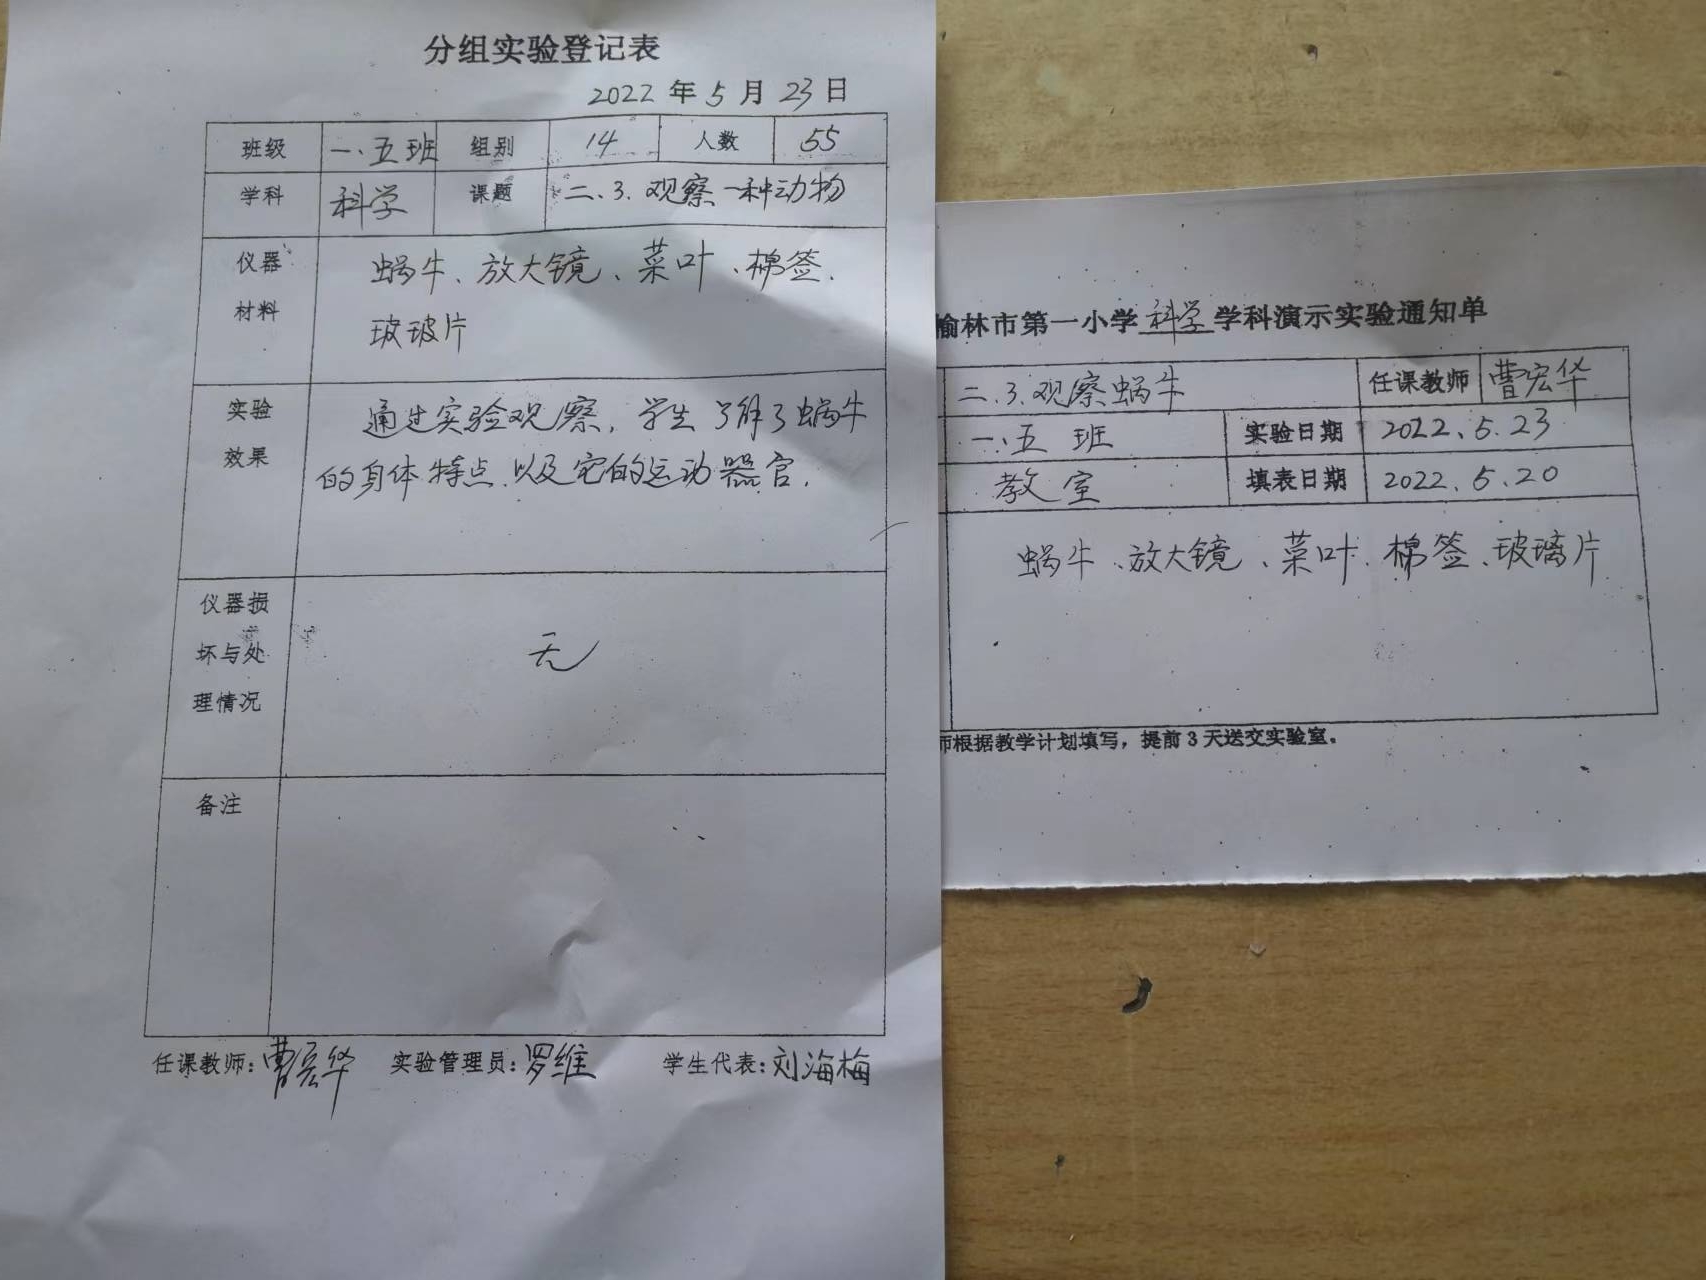 分组实验登记表
2022 年 5 月 23 日
班级 一.五班 组别 14 人数 55
学科 科学 课题 二、3.观察一种动物
仪器 材料
蜗牛、放大镜、菜叶、棉签、
玻玻片
实验 效果
通过实验观察,学生了解了蜗牛
的身体特点、以及它的运动器官.
仪器损
坏与处
理情况
无
备注
任课教师:曹宏华 实验管理员:罗维 学生代表:刘海梅
榆林市第一小学科学学科演示实验通知单
二.3.观察蜗牛 任课教师 曹宏华
一.五班 实验日期 2022.5.23
教室 填表日期 2022.5.20
蜗牛、放大镜、菜叶、棉签、玻璃片
师根据教学计划填写，提前3天送交实验室。